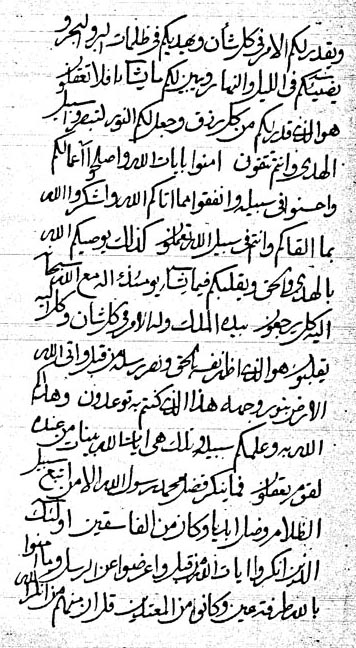 ويقدر لكم الامر في كل شأن ويهديكم في ظلمات البر والبحر و
يضيئكم في الليل والنهار ويبين لكم ما يشاء افلا تعقلون
هو الذي قدر لكم من كل رزق وجعل لكم النور لتبصروا سبيل
الهدى وانتم تتقون امنوا بايات الله واصلحوا اعمالكم
واحسنوا في سبيله وانفقوا مما اتاكم الله واشكروا الله
بما القاكم وانتم في سبيل الله تعملون كذلك يوصيكم الله
بالهدى والحق ويقلبكم فيما يشاء
اليه كل يرجعون بيده الملك وله الامر في كل شأن وكل اليه
يقلبون هو الذي اظهر نفسه بالحق ونصر رسله من قبل واتى الله
الارض بنور وجهه هذا الذي كنتم به توعدون
الله به وعلمكم سبيله تلك هي ايات الله بينات من عنده
لقوم يعقلون فمن ينكر فضل محمد رسول الله الا من تبع سبيل
الظلام وضل وكان من الفاسقين اولئك
الذين انكروا ايات الله من قبل واعرضوا عن الرسل وما امنوا
بالله طرفة عين وكانوا من المعتدين قل ان منهم من انكر الله